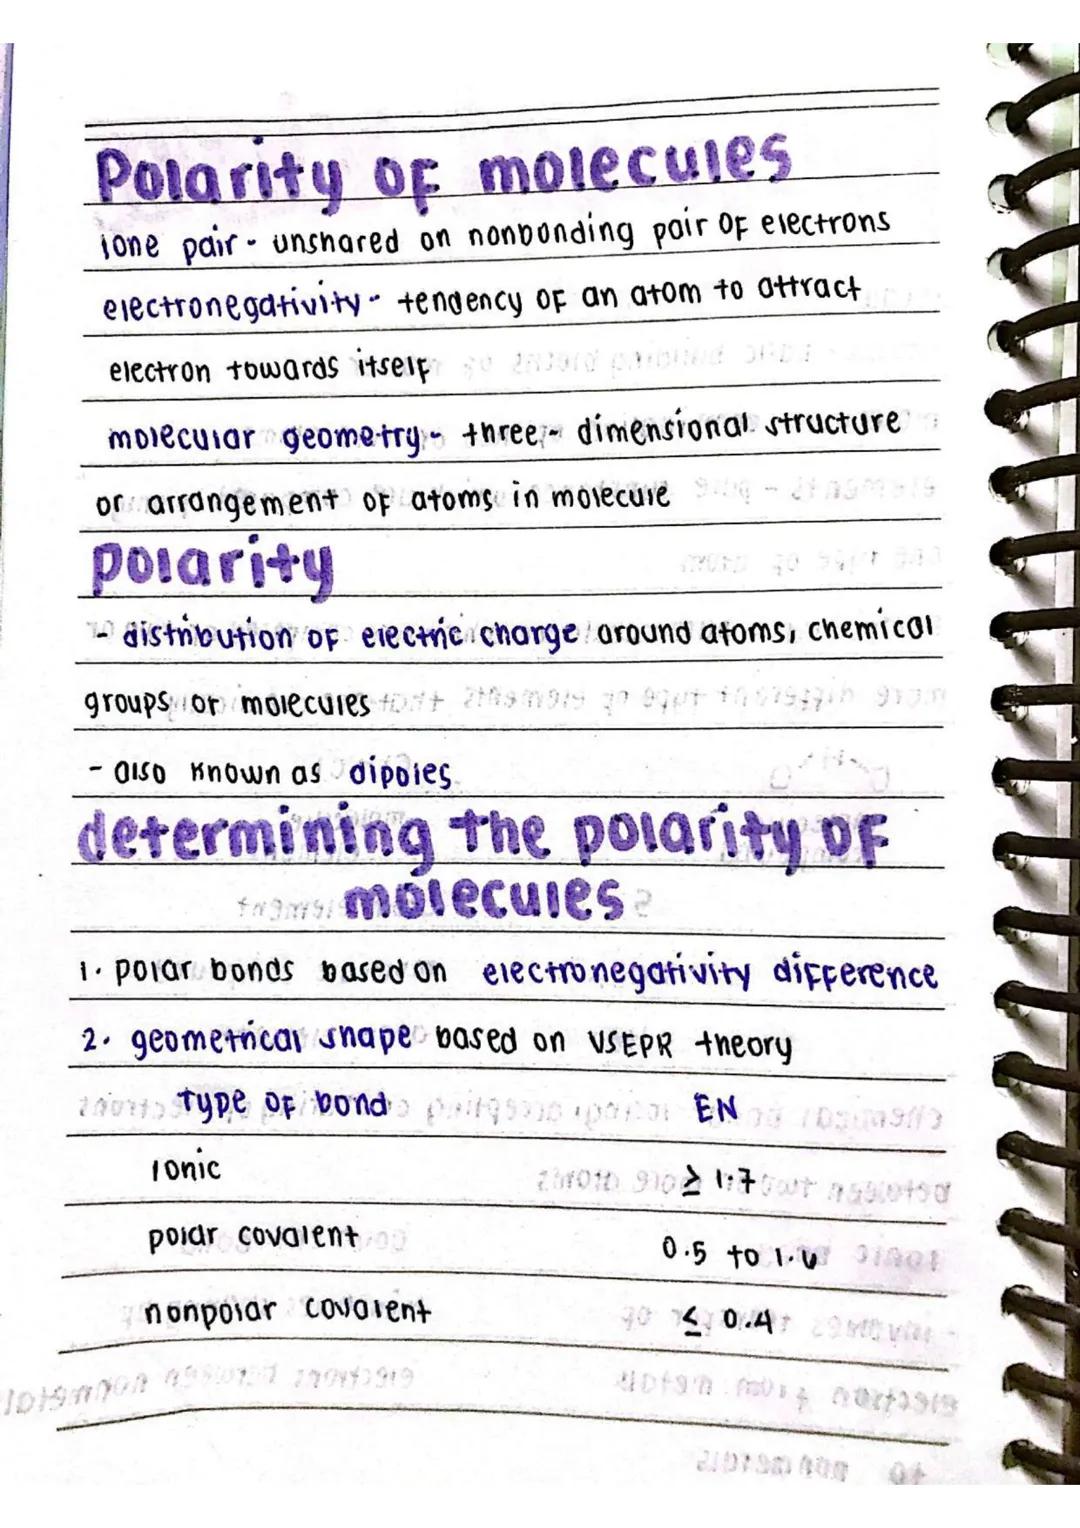 Polarity of molecules
lone pair - unshared on nonbonding pair of electrons
electronegativity - tendency of an atom to attract
electron towards itself
molecular geometry - three - dimensional structure
or arrangement of atoms in molecule
polarity
- distribution of electric charge around atoms, chemical
groups or molecules
- also known as dipoles
determining the polarity of
molecules
1. polar bonds based on electronegativity difference
2. geometrical shape based on VSEPR theory
type of bond EN
Ionic ≥ 1.7
polar covalent 0.5 to 1.6
nonpolar covalent ≤ 0.4